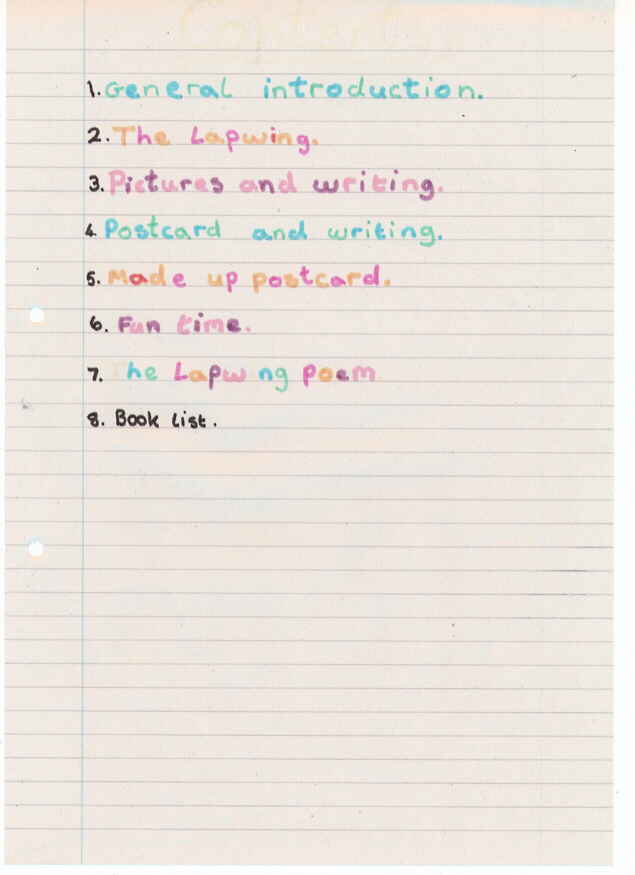 Contents
1. General introduction.
2. The Lapwing.
3. Pictures and writing.
4. Postcard and writing.
5. Made up postcard.
6. Fun time.
7. The Lapwing poem
8. Book List.